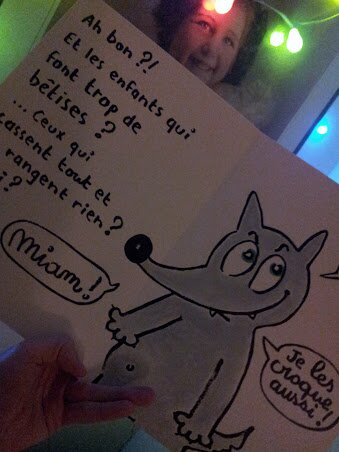 Ah bon?!
Et les enfants qui
font trop de
bêtises?
... Ceux qui
cassent tout et
rangent rien?
Miam!
Je les
croque
aussi!